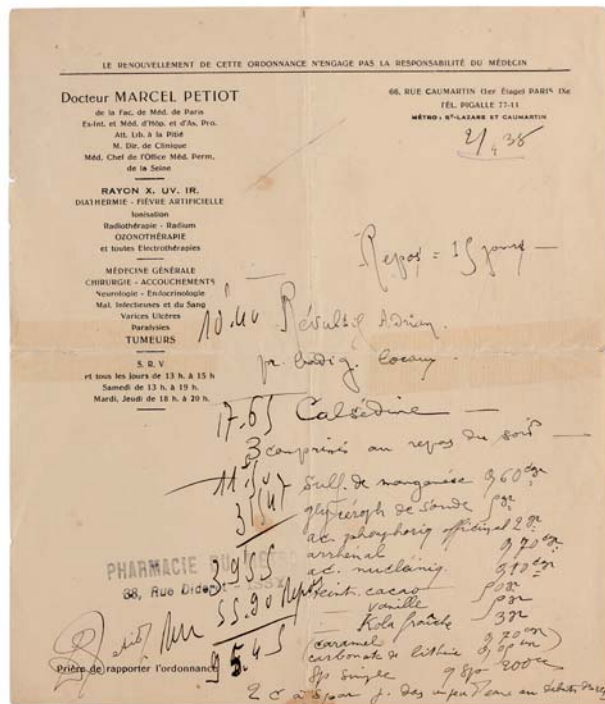 LE RENOUVELLEMENT DE CETTE ORDONNANCE N'ENGAGE PAS LA RESPONSABILITÉ DU MÉDECIN
Docteur MARCEL PETIOT
de la Fac. de Méd. de Paris
Ex-Int. et Méd. d'Hôp. et d'As. Pro.
Att. Lib. à la Pitié
M. Dir. de Clinique
Méd. Chef de l'Office Méd. Perm,
de la Seine
RAYON X. UV. IR.
DIATHERMIE - FIÈVRE ARTIFICIELLE
Ionisation
Radiothérapie - Radium
OZONOTHÉRAPIE
et toutes Électrothérapies
MÉDECINE GÉNÉRALE
CHIRURGIE - ACCOUCHEMENTS
Neurologie - Endocrinologie
Mal. Infectieuses et du Sang
Varices Ulcères
Paralysies
TUMEURS
S. R. V
et tous les jours de 13 h. à 15 h
Samedi de 13 h. à 19 h.
Mardi, Jeudi de 18 h. à 20 h.
66, RUE CAUMARTIN (1er Étage) PARIS IXe
TÉL. PIGALLE 77-11
MÉTRO : St-LAZARE ET CAUMARTIN
Repos = 15 jours
Révulsif Adrian
pr. badig. locaux
17.65 Calsédine
3 comprimés au repas du soir
sulf. de manganèse 0,60
glycéroph de soude
ac. phosphoriq officinal 2 gr
arrhénal 0,70
ac. nucléiniq. 0,10
teint. cacao
vanille
Kola fraîche 3 gr
(caramel
carbonate de lithine
Sp simple 200
PHARMACIE DU
68, Rue Diderot - ISSY
39.55
55.90 Repos
95.45
Petiot
Prière de rapporter l'ordonnance